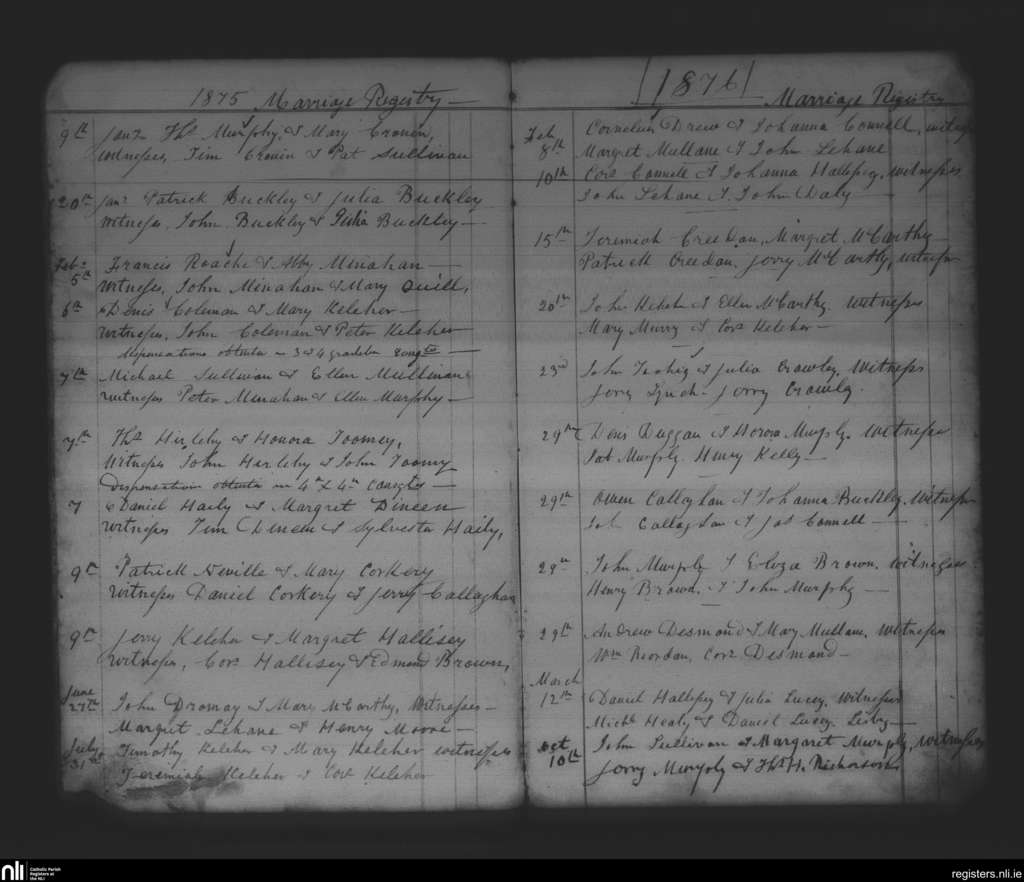 1875 Marriage Registry
9th Jany Ths Murphy & Mary Cronin,
witnesses, Tim Cronin & Pat Sullivan
20th Jany Patrick Buckley & Julia Buckley
witness, John Buckley & Julia Buckley
Feb. 5th Francis Roache & Abby Minahan
witness, John Minahan & Mary Quill,
6th Denis Coleman & Mary Keleher
witness, John Coleman & Peter Keleher
Dispensations obtente in 3 & 4 gradibu
7th Michael Sullivan & Ellen Mullinane
witness Peter Minahan & Ellen Murphy
7th Ths Hirlehy & Honora Toomey,
witness John Hirlehy & John Toomy
Dispensation obtente in 4th & 4th
7 Daniel Haily & Margret Dineen
witness Tim Dineen & Sylvesta Haily,
9th Patrick Neville & Mary Corkery
witness Daniel Corkery & Jerry Callaghan
9th Jerry Keleher & Margret Hallisey
witness, Cors Hallisey & Edmond Brown,
June 27th John Dromay & Mary McCarthy, witnesses
Margrit Lehane & Henry Moore
July 31st Timothy Keleher & Mary Keleher witness
Jeremiah Keleher & Cors Keleher
1876
Marriage Registry
Feb 8th Cornelius Drew & Johanna Connell, witness
Margret Mullane & John Lehane
10th Cors Connell & Johanna Hallisey, witnesses
John Lehane & John Daly
15th Jeremiah Creedan, Margret McCarthy
Patrick Creedan, Jerry McCarthy, witness
20th John & Ellen McCarthy. witnesses
Mary Murry & Cors Keleher
23rd John & Julia Crowley, witness
Jerry Lynch. Jerry Crowly.
29th Denis Duggan & Honora Murphy. witness
Pat Murphy. Henry Kelly
29th Owen Callaghan & Johanna Buckley. witness
Callaghan & Jas Connell
29th John Murphy & Eliza Brown. witnesses
Henry Brown. & John Murphy
29th Andrew Desmond & Mary Mullane, witness
Wm Reordan, Cors Desmond
March 12th Daniel Hallisey & Julia Lucey, witness
Michl Healy & Daniel Lucey.
Oct 10th John Sullivan & Margaret Murphy, witness
Jerry Murphy & Ths H. Nicholson
nli
Catholic Parish
Registers at
the NLI
registers.nli.ie